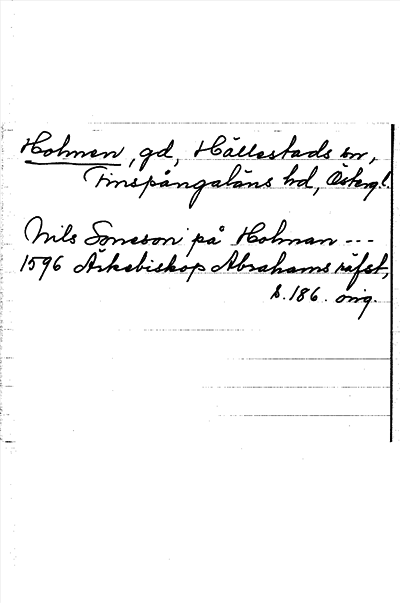 Holmen, gd, Hällestads sn,
Finspångaläns hd, Östergl.
Nils Soneson på Holman ---
1596 Ärkebiskop Abrahams räfst,
s. 186. orig.